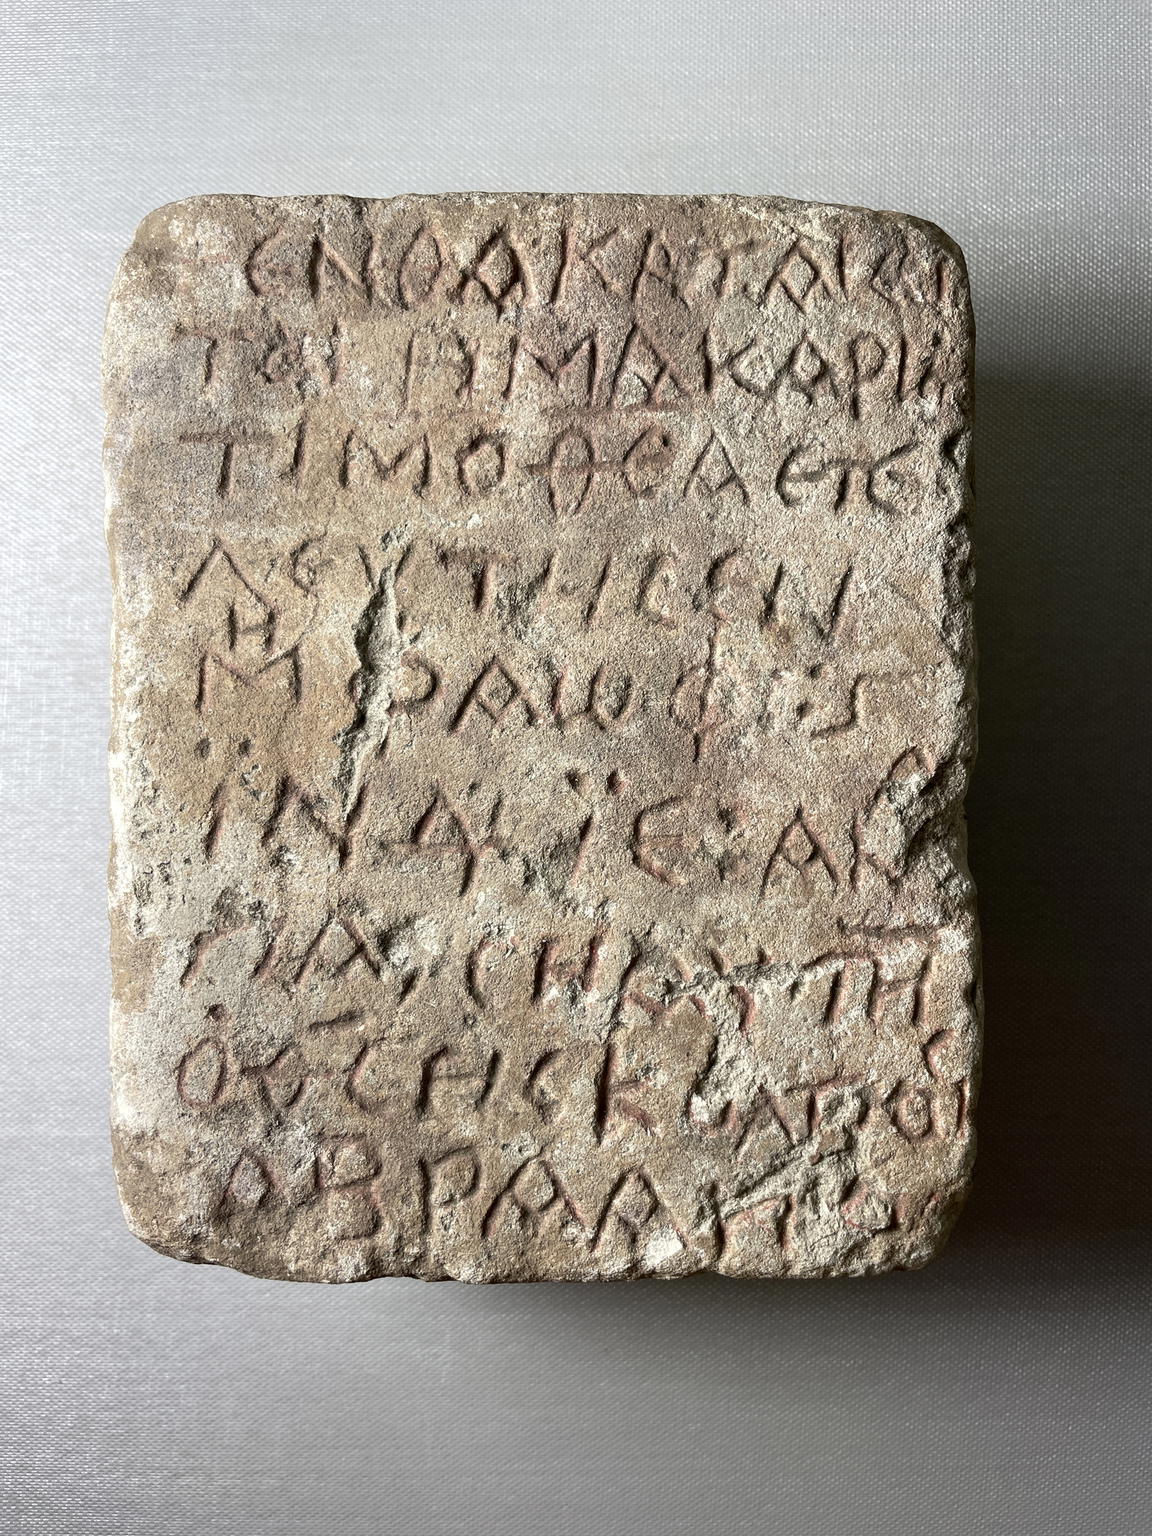 ΕΝΘΑΚΑΤΑΚΙ
ΤΑΙ Η ΜΑΚΑΡΙΑ
ΤΙΜΟΘΕΑ ΕΤΕ
ΛΕΥΤΗCΕΝ
ΜΗ ΦΑΩΦΙ : Ϛ
ΪΝΔ ΪΕ : ΑΝΑ
ΠΑΥCΗ ΑΥΤΗ
Ο ΘC ΗC ΚΟΛΠΟΙC
ΑΒΡΑΑΜ